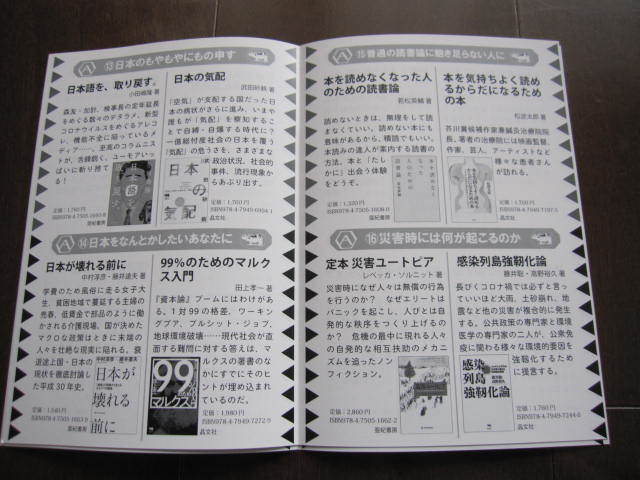 ⑬日本のもやもやにもの申す
日本語を、取り戻す。
小田嶋隆 著
森友・加計、検事長の定年延長
をめぐる数々のデタラメ、新型
コロナウイルスをめぐるアレコ
レ、機能不全に陥っているメ
ディア……。至高のコラムニス
トが、舌鋒鋭く、ユーモアいっ
ぱいに斬り捨て
る！
定価：1,760円
亜紀書房
日本の気配
武田砂鉄 著
「空気」が支配する国だった日
本の病状がさらに進み、いまや
誰もが「気配」を察知すること
で自縛・自爆する時代に？
一億総忖度社会の日本を覆う
「気配」の危うさを、さまざまな
政治状況、社会的
事件、流行現象か
らあぶり出す。
定価：1,760円
ISBN978-4-7949-6994-1
晶文社
⑭日本をなんとかしたいあなたに
日本が壊れる前に
中村淳彦・藤井達夫 著
学費のため風俗に走る女子大
生、貧困地域で蔓延する主婦の
売春、低賃金で部品のように働
かされる介護現場。国が決めた
マクロな政治はときに末端の
人々を壮絶な現実に陥れる。衰
退途上国・日本の
現状を徹底討論し
た平成30年史。
定価：1,540円
亜紀書房
99%のためのマルク
ス入門
田上孝一 著
『資本論』ブームにはわけがあ
る。1対99の格差、ワーキン
グプア、ブルシット・ジョブ、
地球環境破壊……現代社会が直
面する難問に対する答えは、マ
ルクスの著書のな
かにすでにそのヒ
ントが埋め込まれ
ているのだ。
定価：1,980円
ISBN978-4-7949-7272-9
晶文社
⑮普通の読書論に飽き足らない人に
本を読めなくなった人
のための読書論
若松英輔 著
読めないときは、無理をして読
まなくていい。読めない本にも
意味があるから、積読でもいい。
本読みの達人が案内する読書の
方法。本と「たし
かに」出会う体験
をどうぞ。
定価：1,320円
ISBN978-4-7505-1608-0
亜紀書房
本を気持ちよく読め
るからだになるため
の本
松波太郎 著
芥川賞候補作家兼鍼灸治療院院
長。著者の治療院には映画監督、
作家、芸人、アーティストなど
様々な患者さん
が訪れる。
定価：1,760円
晶文社
⑯災害時には何が起こるのか
定本 災害ユートピア
レベッカ・ソルニット 著
災害時になぜ人々は無償の行為
を行うのか？　なぜエリートは
パニックを起こし、人びとは自
発的な秩序をつくり上げるの
か？　危機の最中に現れる人々
の自発的な相互扶助のメカニ
ズムを追ったノン
フィクション。
定価：2,860円
ISBN978-4-7505-1662-2
亜紀書房
感染列島強靱化論
藤井聡・高野裕久 著
長びくコロナ禍では必ずと言っ
ていいほど大雨、土砂崩れ、地
震など他の災害が複合的に発生
する。公共政策の専門家と環境
医学の専門家の二人が、公衆免
疫に関わる様々な環境的要因を
強靱化するため
に提言する。
定価：1,760円
ISBN978-4-7949-7244-6
晶文社